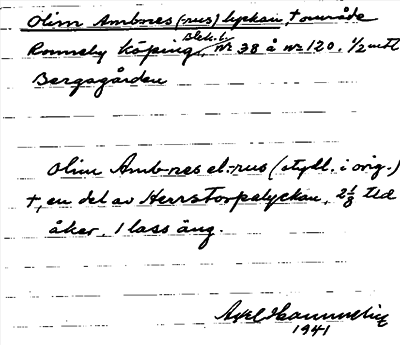 Olim Ambnes (-rus) lyckan, † område
Ronneby köping, Blek. l. nr 38 å nr 120, 1/2 mtl
Bergagården
Olim Ambnes el. -rus (otydl. i orig.)
†, en del av Herrstorpalyckan, 2 1/8 tld
åker, 1 lass äng.
Axel
1941